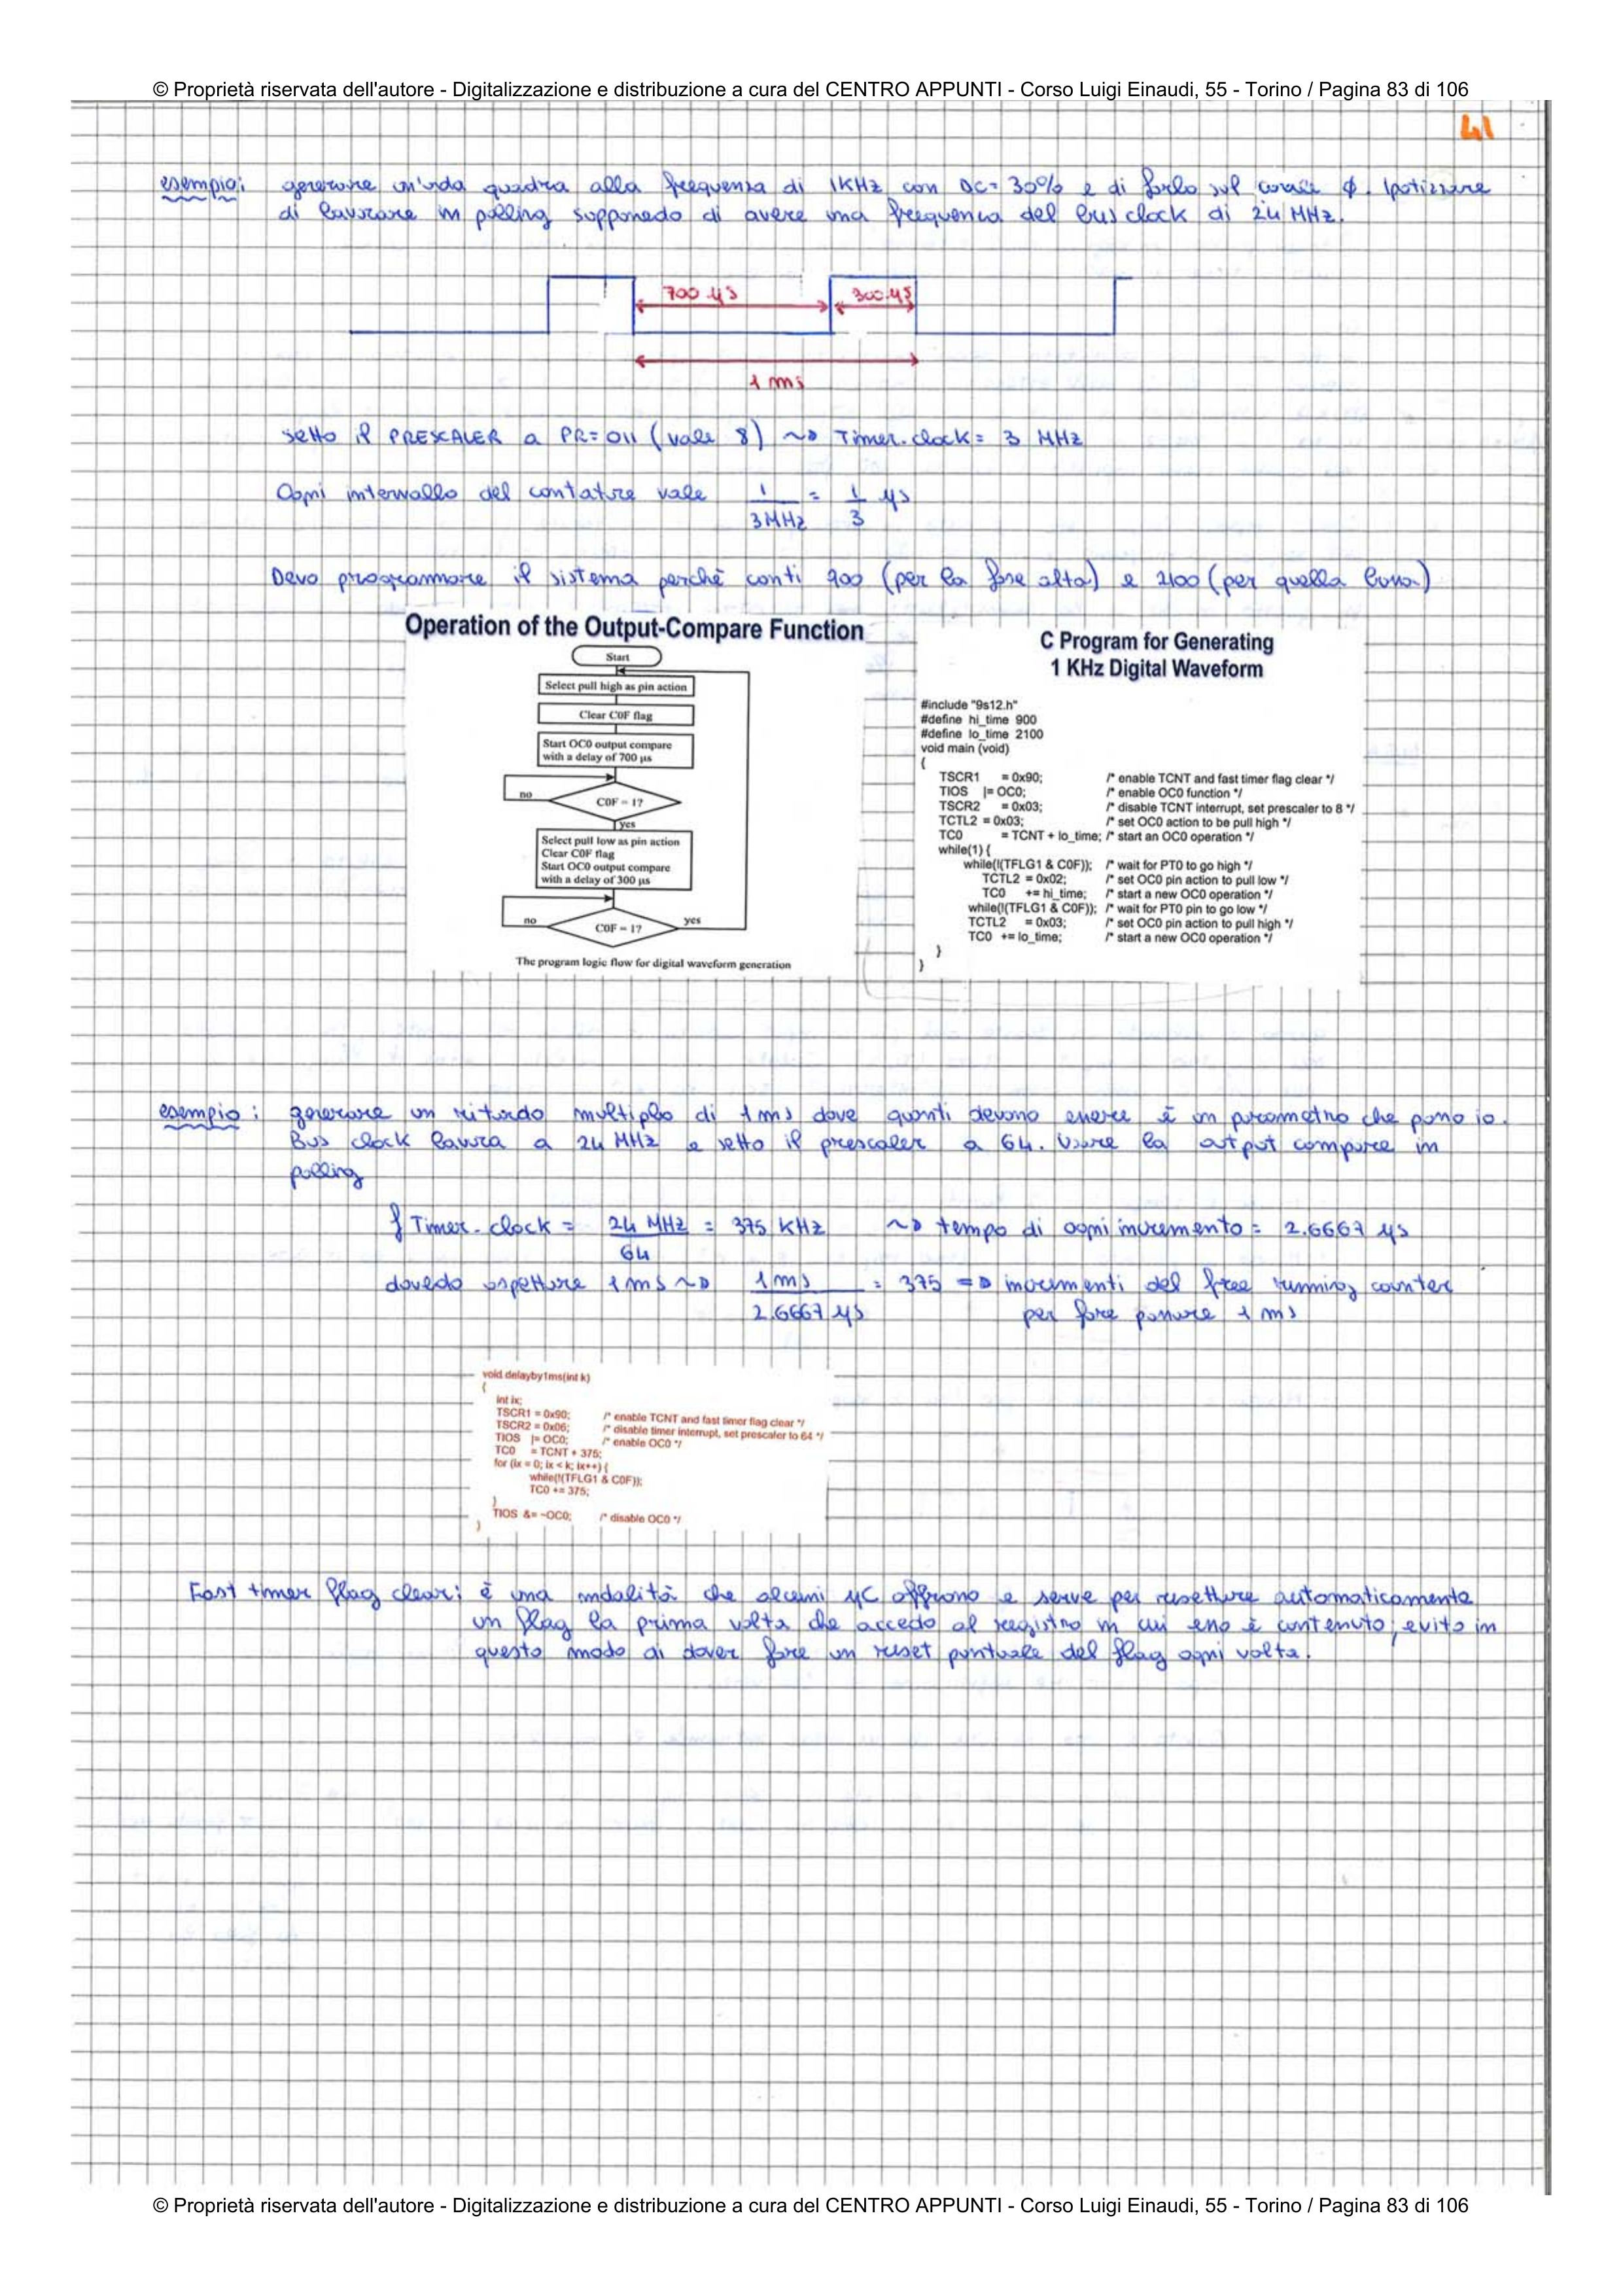 © Proprietà riservata dell'autore - Digitalizzazione e distribuzione a cura del CENTRO APPUNTI - Corso Luigi Einaudi, 55 - Torino / Pagina 83 di 106
41
esempio: generare un'onda quadra alla frequenza di 1KHz con DC= 30% e di farlo sul canale ϕ. Ipotizzare
di lavorare in polling supponedo di avere una frequenza del bus clock di 24 MHz.
700 μs
300 μs
1 ms
setto il PRESCALER a PR= 011 (vale 8) ~> Timer.clock= 3 MHz
Ogni intervallo del contatore vale 1/3MHz = 1/3 μs
Devo programmare il sistema perchè conti 900 (per la fase alta) e 2100 (per quella bassa)
Operation of the Output-Compare Function
Start
Select pull high as pin action
Clear C0F flag
Start OC0 output compare
with a delay of 700 μs
no
C0F = 1?
yes
Select pull low as pin action
Clear C0F flag
Start OC0 output compare
with a delay of 300 μs
no
C0F = 1?
yes
The program logic flow for digital waveform generation
C Program for Generating
1 KHz Digital Waveform
#include "9s12.h"
#define hi_time 900
#define lo_time 2100
void main (void)
{
TSCR1 = 0x90; /* enable TCNT and fast timer flag clear */
TIOS |= OC0; /* enable OC0 function */
TSCR2 = 0x03; /* disable TCNT interrupt, set prescaler to 8 */
TCTL2 = 0x03; /* set OC0 action to be pull high */
TC0 = TCNT + lo_time; /* start an OC0 operation */
while(1) {
while(!(TFLG1 & C0F)); /* wait for PT0 to go high */
TCTL2 = 0x02; /* set OC0 pin action to pull low */
TC0 += hi_time; /* start a new OC0 operation */
while(!(TFLG1 & C0F)); /* wait for PT0 pin to go low */
TCTL2 = 0x03; /* set OC0 pin action to pull high */
TC0 += lo_time; /* start a new OC0 operation */
}
}
esempio: generare un ritardo multiplo di 1ms dove quanti devono essere è un parametro che passo io.
Bus clock lavora a 24 MHz e setto il prescaler a 64. Usare la output compare in
polling
f Timer.clock = 24 MHz/64 = 375 KHz ~> tempo di ogni incremento = 2.6667 μs
dovedo aspettare 1ms ~> 1ms/2.6667 μs = 375 => incrementi del free running counter
per fare passare 1 ms
void delayby1ms(int k)
{
int ix;
TSCR1 = 0x90; /* enable TCNT and fast timer flag clear */
TSCR2 = 0x06; /* disable timer interrupt, set prescaler to 64 */
TIOS |= OC0; /* enable OC0 */
TC0 = TCNT + 375;
for (ix = 0; ix < k; ix++) {
while(!(TFLG1 & C0F));
TC0 += 375;
}
TIOS &= ~OC0; /* disable OC0 */
}
Fast timer flag clear: è una modalità che alcuni μC offrono e serve per resettare automaticamente
un flag la prima volta che accedo al registro in cui esso è contenuto; evito in
questo modo di dover fare un reset puntuale del flag ogni volta.
© Proprietà riservata dell'autore - Digitalizzazione e distribuzione a cura del CENTRO APPUNTI - Corso Luigi Einaudi, 55 - Torino / Pagina 83 di 106